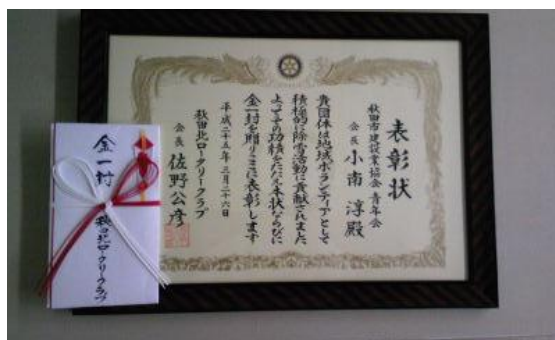 表彰状
秋田市建設業協会 青年会
会長 小南 淳殿
貴団体は地域ボランティアとして
積極的に除雪活動に貢献されました
よってその功績をたたえ本状ならびに
金一封を贈りここに表彰します
平成二十五年三月二十六日
秋田北ロータリークラブ
会長 佐野公彦
金一封
秋田北ロータリークラブ